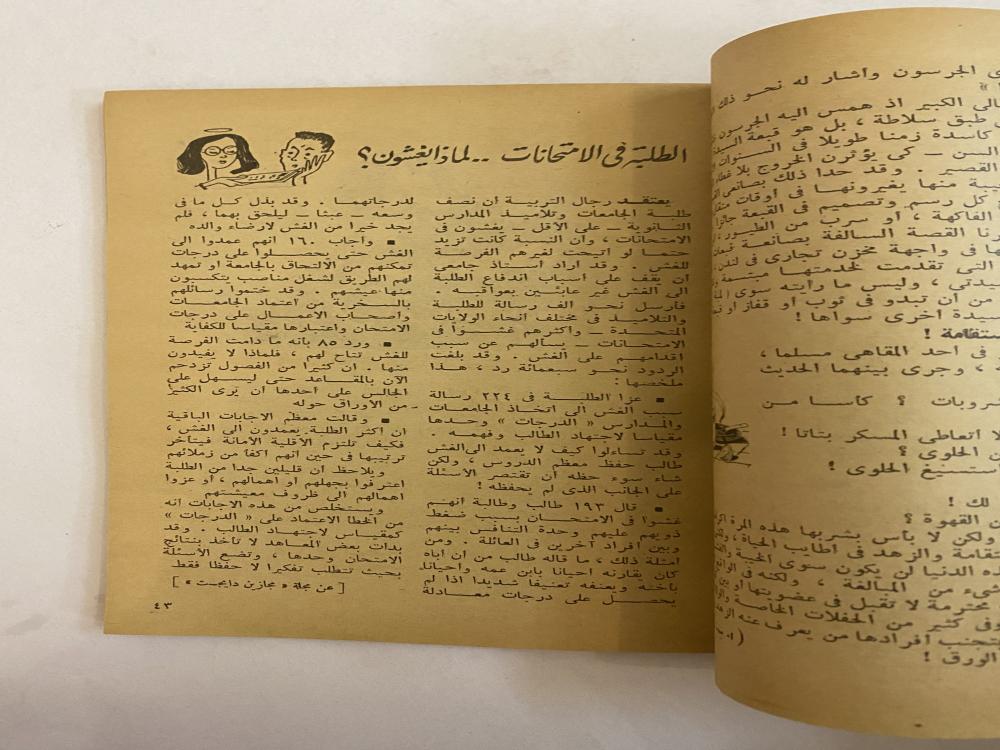 الطلبة فى الامتحانات .. لماذا يغشون ؟
يعتقد رجال التربية أن نصف
طلبة الجامعات وتلاميذ المدارس
الثانوية – على الأقل – يغشون فى
الامتحانات ، وأن النسبة كانت تزيد
حتما لو أتيحت لغيرهم الفرصة
للغش . وقد أراد أستاذ جامعى
أن يقف على أسباب اندفاع الطلبة
الى الغش غير عابئين بعواقبه .
فأرسل نحو ألف رسالة للطلبة
والتلاميذ فى مختلف أنحاء الولايات
المتحدة – وأكثرهم غشوا فى
الامتحانات – يسألهم عن سبب
اقدامهم على الغش . وقد بلغت
الردود نحو سبعمائة رد ، هذا
ملخصها :
▪ عزا الطلبة فى ٢٢٤ رسالة
سبب الغش الى اتخاذ الجامعات
والمدارس « الدرجات » وحدها
مقياسا لاجتهاد الطالب وفهمه .
وقد تساءلوا كيف لا يعمد الى الغش
طالب حفظ معظم الدروس ، ولكن
شاء سوء حظه أن تقتصر الأسئلة
على الجانب الذى لم يحفظه !
▪ قال ١٩٣ طالب وطالبة أنهم
غشوا فى الامتحان بسبب ضغط
ذويهم عليهم وحدة التنافس بينهم
وبين أفراد آخرين فى العائلة . ومن
أمثلة ذلك ، ما قاله طالب من أن أباه
كان يقارنه أحيانا بابن عمه وأحيانا
بأخته ويعنفه تعنيفا شديدا اذا لم
يحصل على درجات معادلة
لدرجاتهما . وقد بذل كل ما فى
وسعه – عبثا – ليلحق بهما ، فلم
يجد خيرا من الغش لارضاء والده
▪ وأجاب ١٦٠ أنهم عمدوا الى
الغش حتى يحصلوا على درجات
تمكنهم من الالتحاق بالجامعة أو تمهد
لهم الطريق لشغل مناصب يتكسبون
منها عيشهم . وقد ختموا رسائلهم
بالسخرية من اعتماد الجامعات
وأصحاب الأعمال على درجات
الامتحان واعتبارها مقياسا للكفاية
▪ ورد ٨٥ بأنه ما دامت الفرصة
للغش تتاح لهم ، فلماذا لا يفيدون
منها . ان كثيرا من الفصول تزدحم
الآن بالمقاعد حتى ليسهل على
الجالس على أحدها أن يرى الكثير
من الأوراق حوله
▪ وقالت معظم الاجابات الباقية
ان أكثر الطلبة يعمدون الى الغش ،
فكيف تلتزم الأقلية الأمانة فيتأخر
ترتيبها فى حين أنهم أكفأ من زملائهم
ويلاحظ أن قليلين جدا من الطلبة
اعترفوا بجهلهم أو اهمالهم ، أو عزوا
اهمالهم الى ظروف معيشتهم
ويستخلص من هذه الاجابات أنه
من الخطأ الاعتماد على « الدرجات »
كمقياس لاجتهاد الطالب . وقد
بدأت بعض المعاهد لا تأخذ بنتائج
الامتحان وحدها ، وتضع الأسئلة
بحيث تتطلب تفكيرا لا حفظا فقط
[ عن مجلة « مجازين دايجست » ]
٤٣
الجرسون وأشار له نحو ذلك
الكبير اذ همس اليه الجرسون
طبق سلاطة ، بل هو قبعة السيدة
كاسدة زمنا طويلا فى السنوات
السن – كى يؤثرن الخروج بلا غطاء
القصير . وقد حدا ذلك بصانعى
منها يغيرونها فى أوقات
كل رسم وتصميم فى القبعة جائزا
الفاكهة ، أو سرب من الطيور ،
القصة السالفة بصانعة قبعات
فى واجهة مخزن تجارى فى لندن ،
التى تقدمت لخدمتها مبتسمة
سيدتى ، وليس ما رأيته سوى
من أن تبدو فى ثوب أو قفاز أو
سيدة أخرى سواها !
فى أحد المقاهى مسلما ،
، وجرى بينهما الحديث
؟ كأسا من
لا أتعاطى المسكر بتاتا !
الحلوى ؟
أستسيغ الحلوى !
لك !
القهوة ؟
ولكن لا بأس بشربها هذه المرة
والزهد فى أطايب الحياة ،
هذه الدنيا لن يكون سوى الخيبة
شىء من المبالغة ، ولكنه فى الواقع
محترمة لا تقبل فى عضويتها
وفى كثير من الحفلات الخاصة
يتجنب أفرادها من يعرف عنه الزهد
الورق !